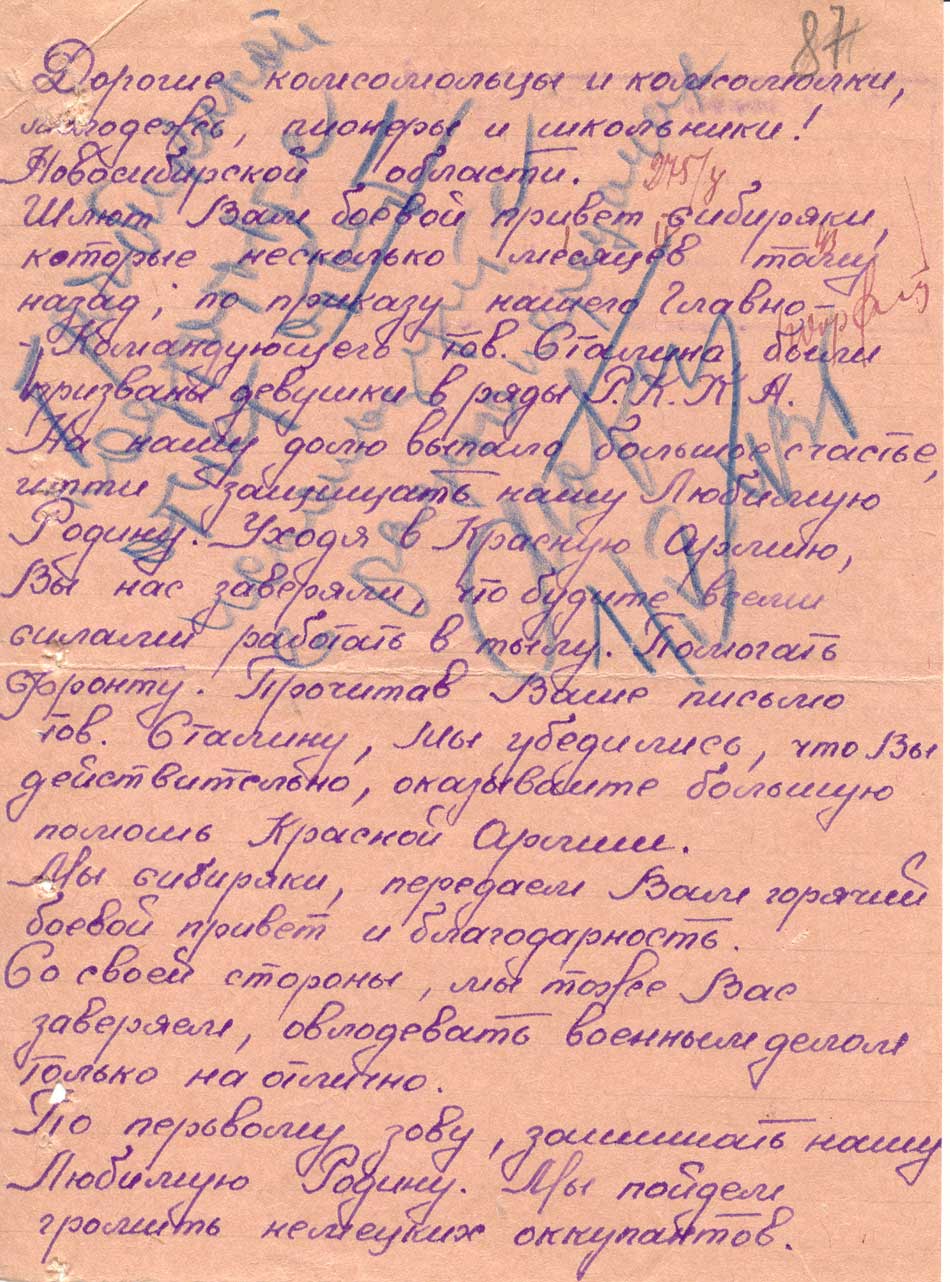 87
Дорогие комсомольцы и комсомолки,
молодежь, пионеры и школьники!
Новосибирской области.
275/у
Шлют Вам боевой привет сибиряки,
которые несколько месяцев тому
назад, по приказу нашего Главно-
-Командующего тов. Сталина были
призваны девушки в ряды Р.К.К.А.
На нашу долю выпало большое счастье,
итти защищать нашу Любимую
Родину. Уходя в Красную Армию,
Вы нас заверяли, что будите всеми
силами работать в тылу. Помогать
фронту. Прочитав Ваше письмо
тов. Сталину, мы убедились, что Вы
действительно, оказываите большую
помошь Красной Армии.
Мы сибиряки, передаем Вам горячий
боевой привет и благодарность.
Со своей стороны, мы тоже Вас
заверяем, овлодевать военным делом
только на отлично.
По перьвому зову, зашишать нашу
Любимую Родину. Мы пойдем
громить немецких оккупантов.